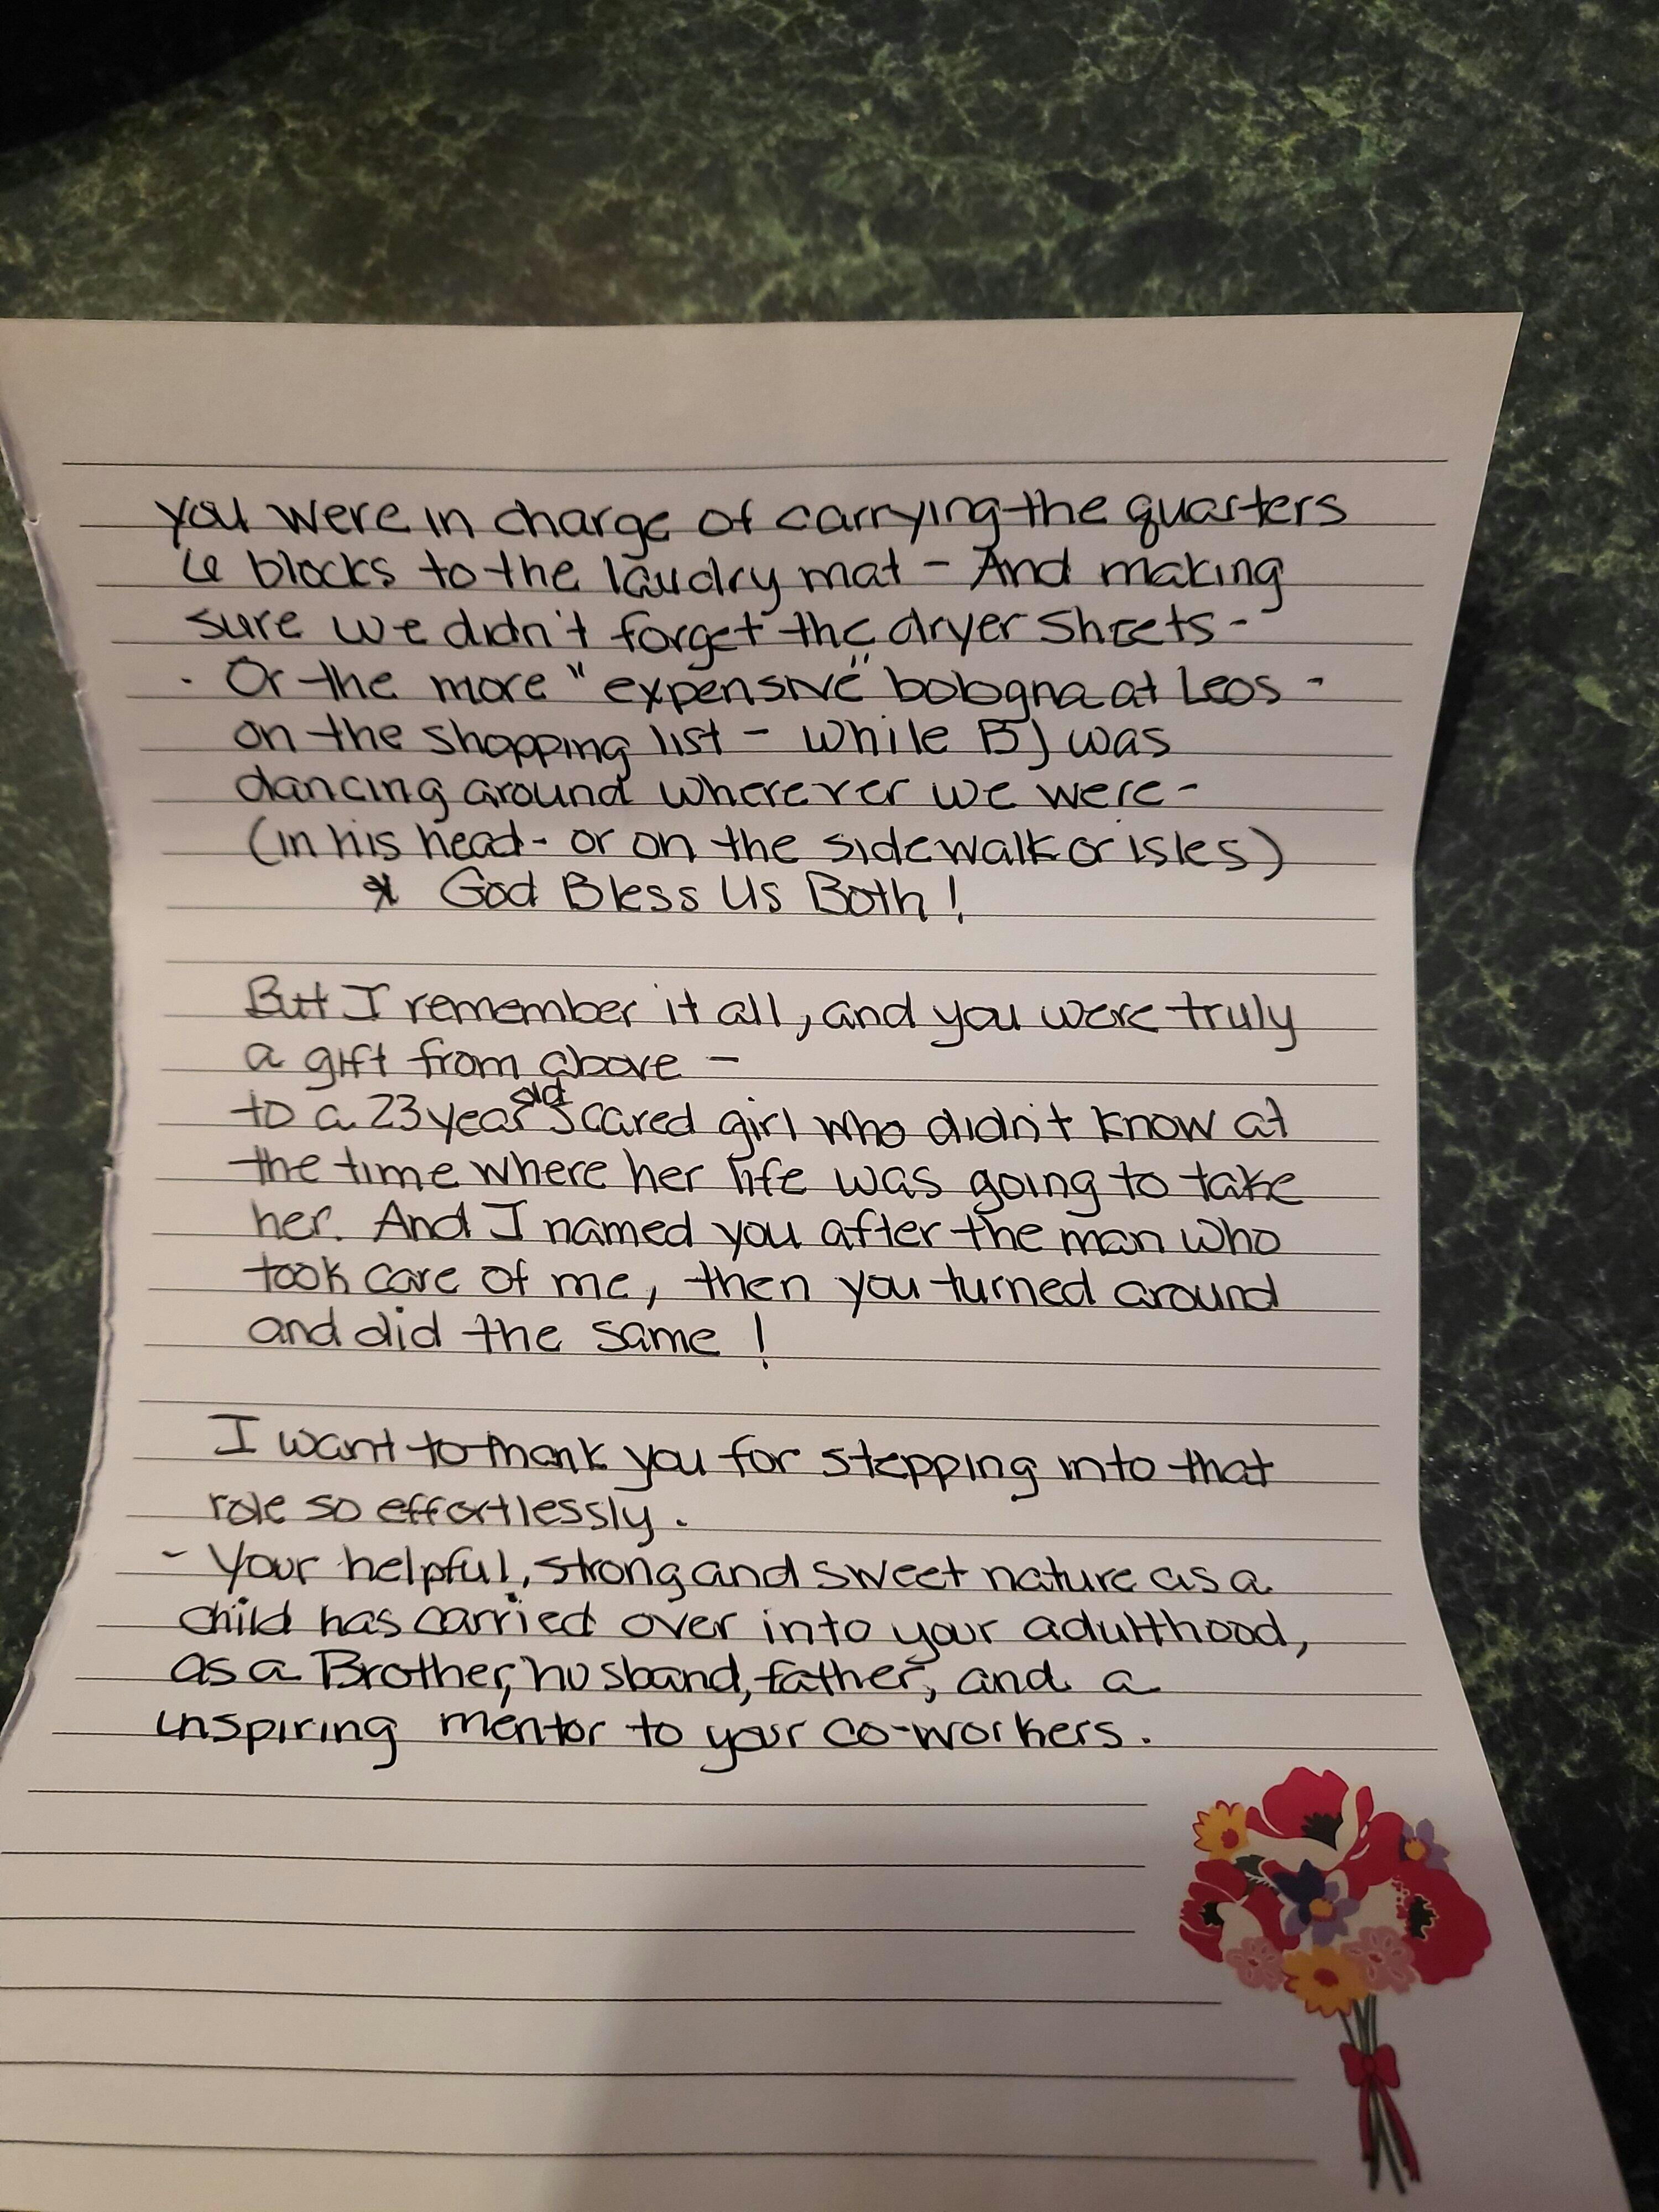 you were in charge of carrying the quarters
6 blocks to the laudry mat - And making
sure we didn't forget the dryer sheets -
· Or the more "expensive" bologna at Leos -
on the shopping list - while BJ was
dancing around wherever we were -
(in his head - or on the sidewalk or isles)
* God Bless Us Both!
But I remember it all, and you were truly
a gift from above -
to a 23 year old scared girl who didn't know at
the time where her life was going to take
her. And I named you after the man who
took care of me, then you turned around
and did the same!
I want to thank you for stepping into that
role so effortlessly.
- Your helpful, strong and sweet nature as a
child has carried over into your adulthood,
as a Brother, husband, father, and a
inspiring mentor to your co-workers.